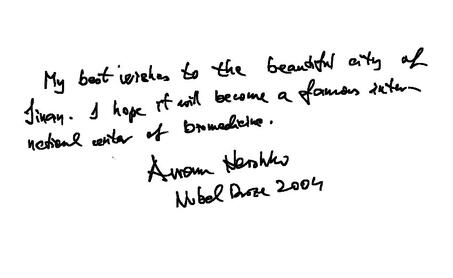 My best wishes to the beautiful city of
Jinan. I hope it will become a famous inter-
national center of biomedicine.
Avram Hershko
Nobel Prize 2004